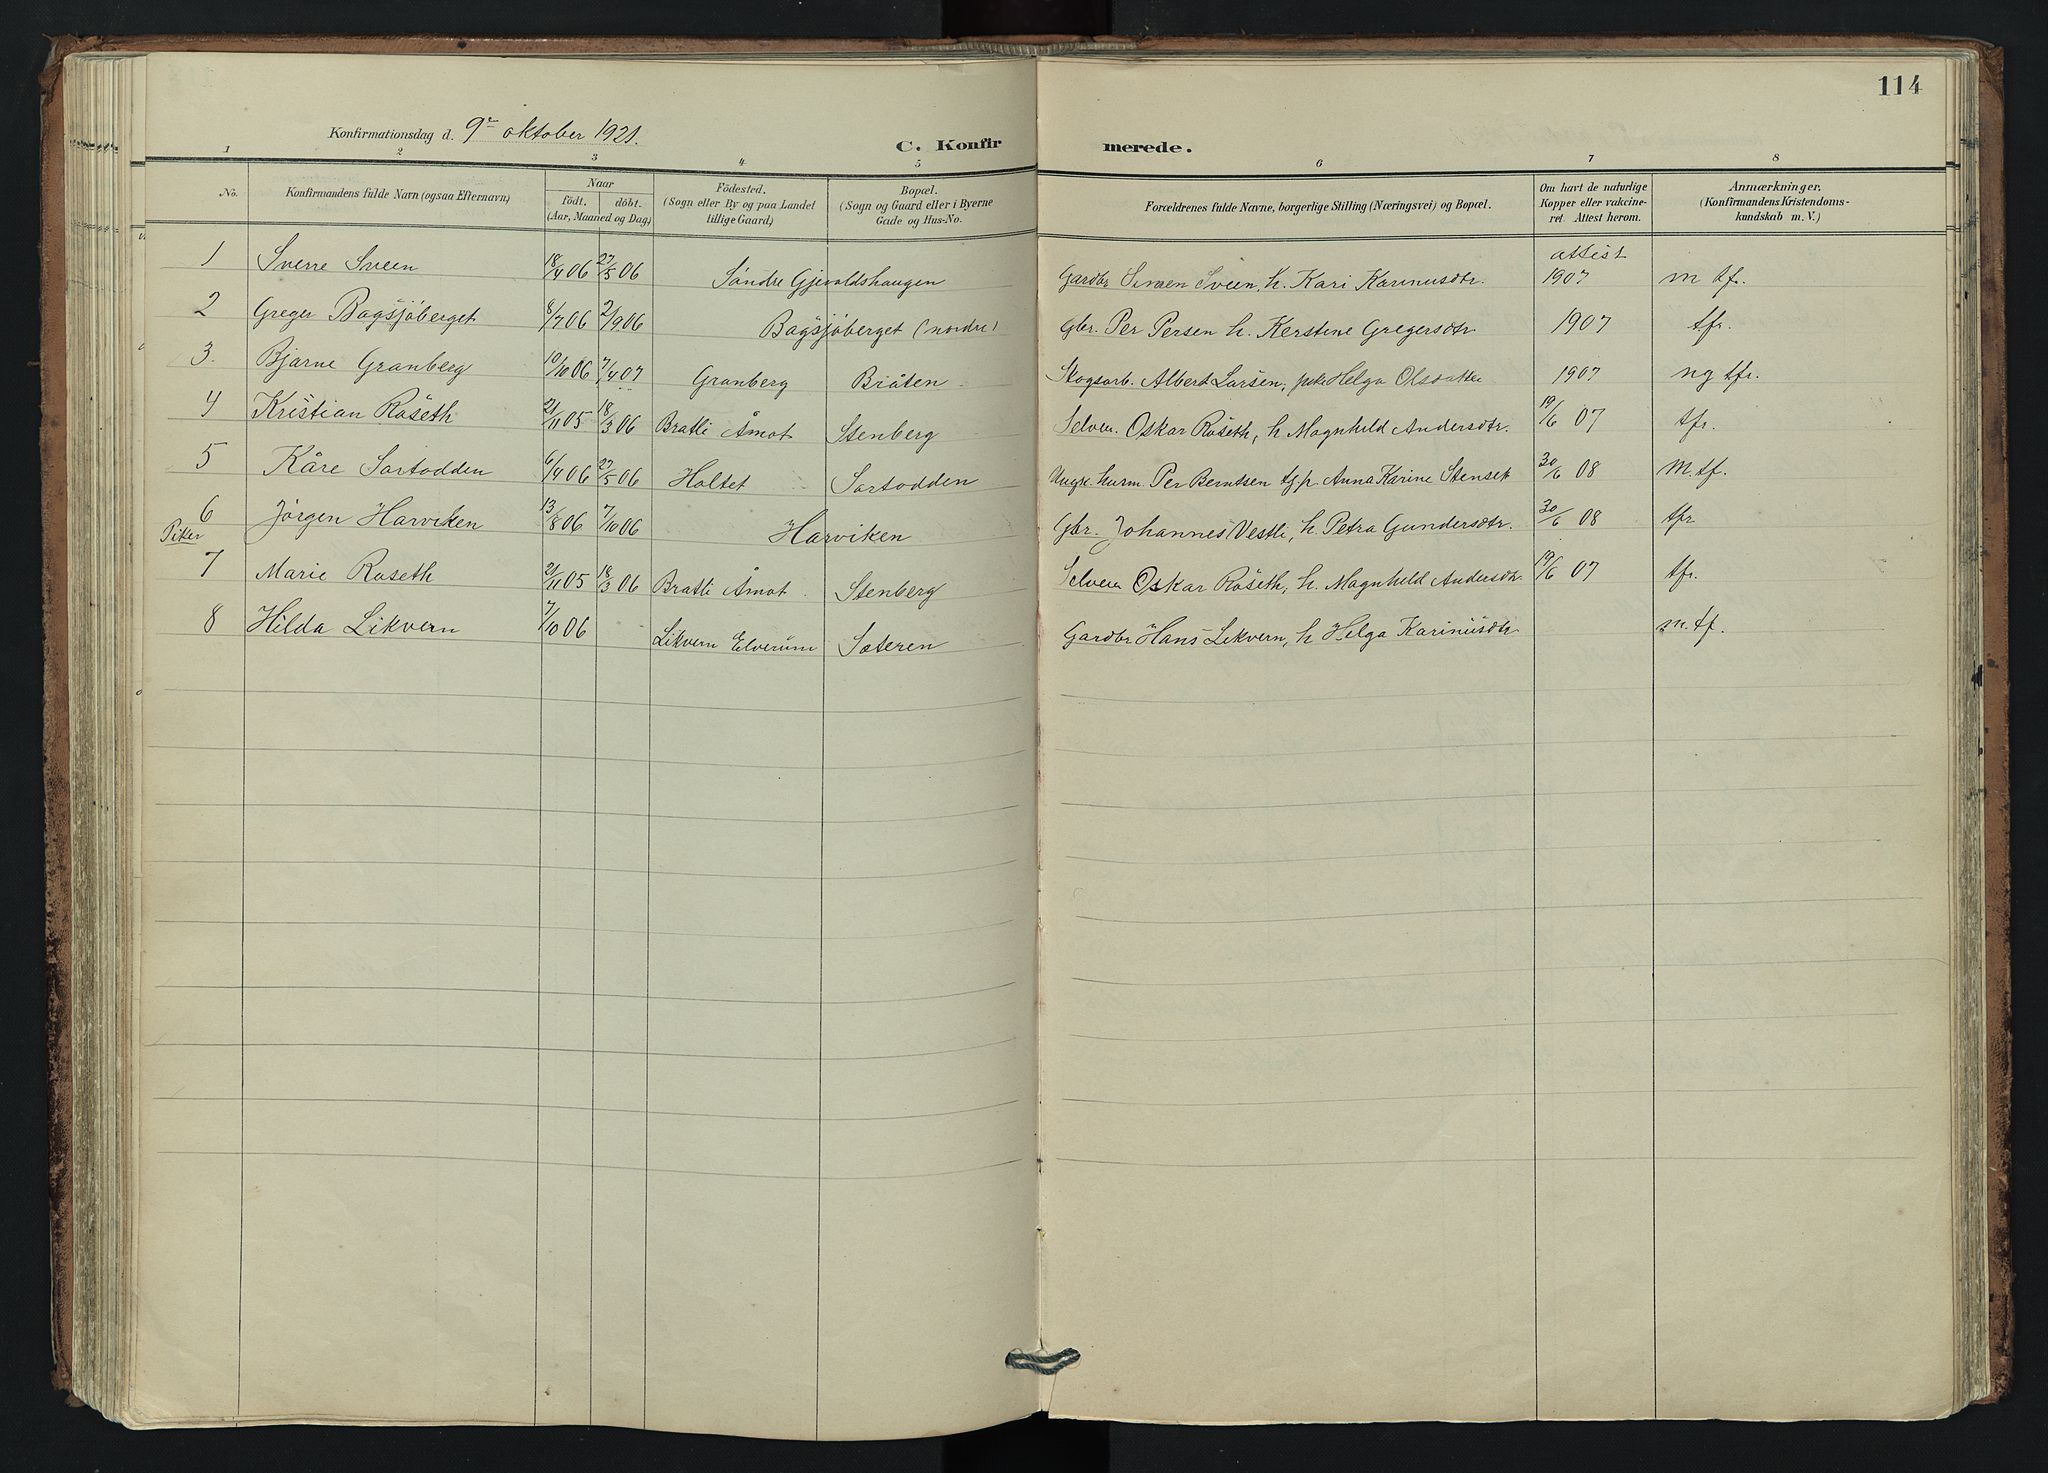 114
Konfirmationsdag d. 9de oktober 1921.
C. Konfirmerede.
1 2 3 4 5 6 7 8
No.
Konfirmandens fulde Navn (ogsaa Efternavn)
Naar
født. døbt.
(Aar, Maaned og Dag)
Fødested.
(Sogn eller By og paa Landet
tillige Gaard)
Bopæl.
(Sogn og Gaard eller i Byerne
Gade og Hus-No.
Forældrenes fulde Navne, borgerlige Stilling (Næringsvei) og Bopæl.
Om havt de naturlige
Kopper eller vakcine-
ret. Attest herom.
Anmærkninger.
(Konfirmandens Kristendoms-
kundskab m. V.)
attest
1 Sverre Sveen 18/4 06 27/5 06 Søndre Gjevoldshaugen Gardbr Simen Sveen, h. Kari Karinusdtr. 1907 m tfr.
2 Greger Bagsjøberget 8/7 06 2/9 06 Bagsjøberget (nordre) Gbr. Per Persen h. Kerstine Gregersdtr 1907 tfr.
3. Bjarne Granberg 19/10 06 7/4 07 Granberg Bråten Skogsarb. Albert Larsen, Helga Olsdatter 1907 ng tfr.
4 Kristian Røseth 21/11 05 18/3 06 Bratli Åmot Stenberg Selvei. Oskar Røseth, h Magnhild Andersdtr. 19/6 07 tfr.
5 Kåre Sortodden 6/4 06 27/5 06 Holtet Sortodden Ungk. husm. Per Berntsen tj.p. Anna Karine Stenset 30/6 08 M. tf.
6 Jørgen Harviken 13/8 06 7/10 06 Harviken Gbr. Johannes Vestli, h. Petra Gundersdtr. 30/6 08 tfr
Piker
7 Marie Røseth 21/11 05 18/3 06 Bratli Åmot Stenberg Selvei Oskar Røseth, h. Magnhild Andersdtr. 19/6 07 tfr.
8 Hilda Likvern 7/10 06 Likvern Elverum Sæteren Gardbr Hans Likvern, h Helga Karinusdtr m. tf.